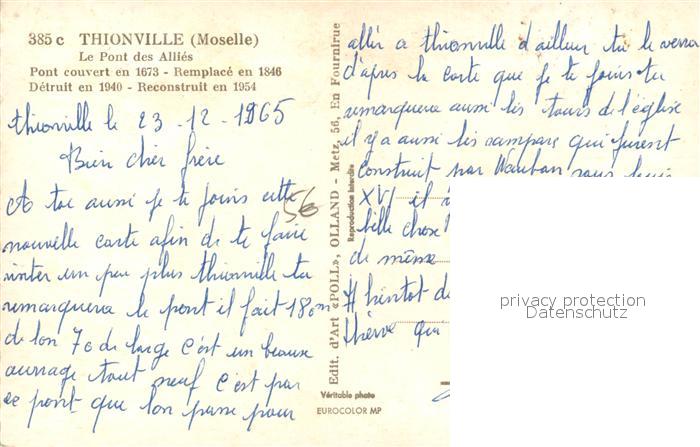 385 c THIONVILLE (Moselle)
Le Pont des Alliés
Pont couvert en 1673 - Remplacé en 1846
Détruit en 1940 - Reconstruit en 1954
Thionville le 23-12-1965
Bien cher frère
A toi aussi je te joins cette
nouvelle carte afin de te faire
visiter un peu plus thionville tu
remarquera le pont il fait 180m
de lon 70 de large c'est un beaux
ouvrage tout neuf c'est par
ce pont que l'on passe pour
56
Edit. d'Art «POLL», OLLAND - Metz, 56, En Fournirue
Reproduction interdite
Véritable photo
EUROCOLOR MP
allir a thionville d'ailleur tu le verra
d'après la carte que je te joins tu
remarquera aussi les tours de l'église
il y a aussi les rampars qui furent
construit par Vauban sous
XVI il
belle chose
de même
A bientot de
Pierre qui
privacy protection
Datenschutz